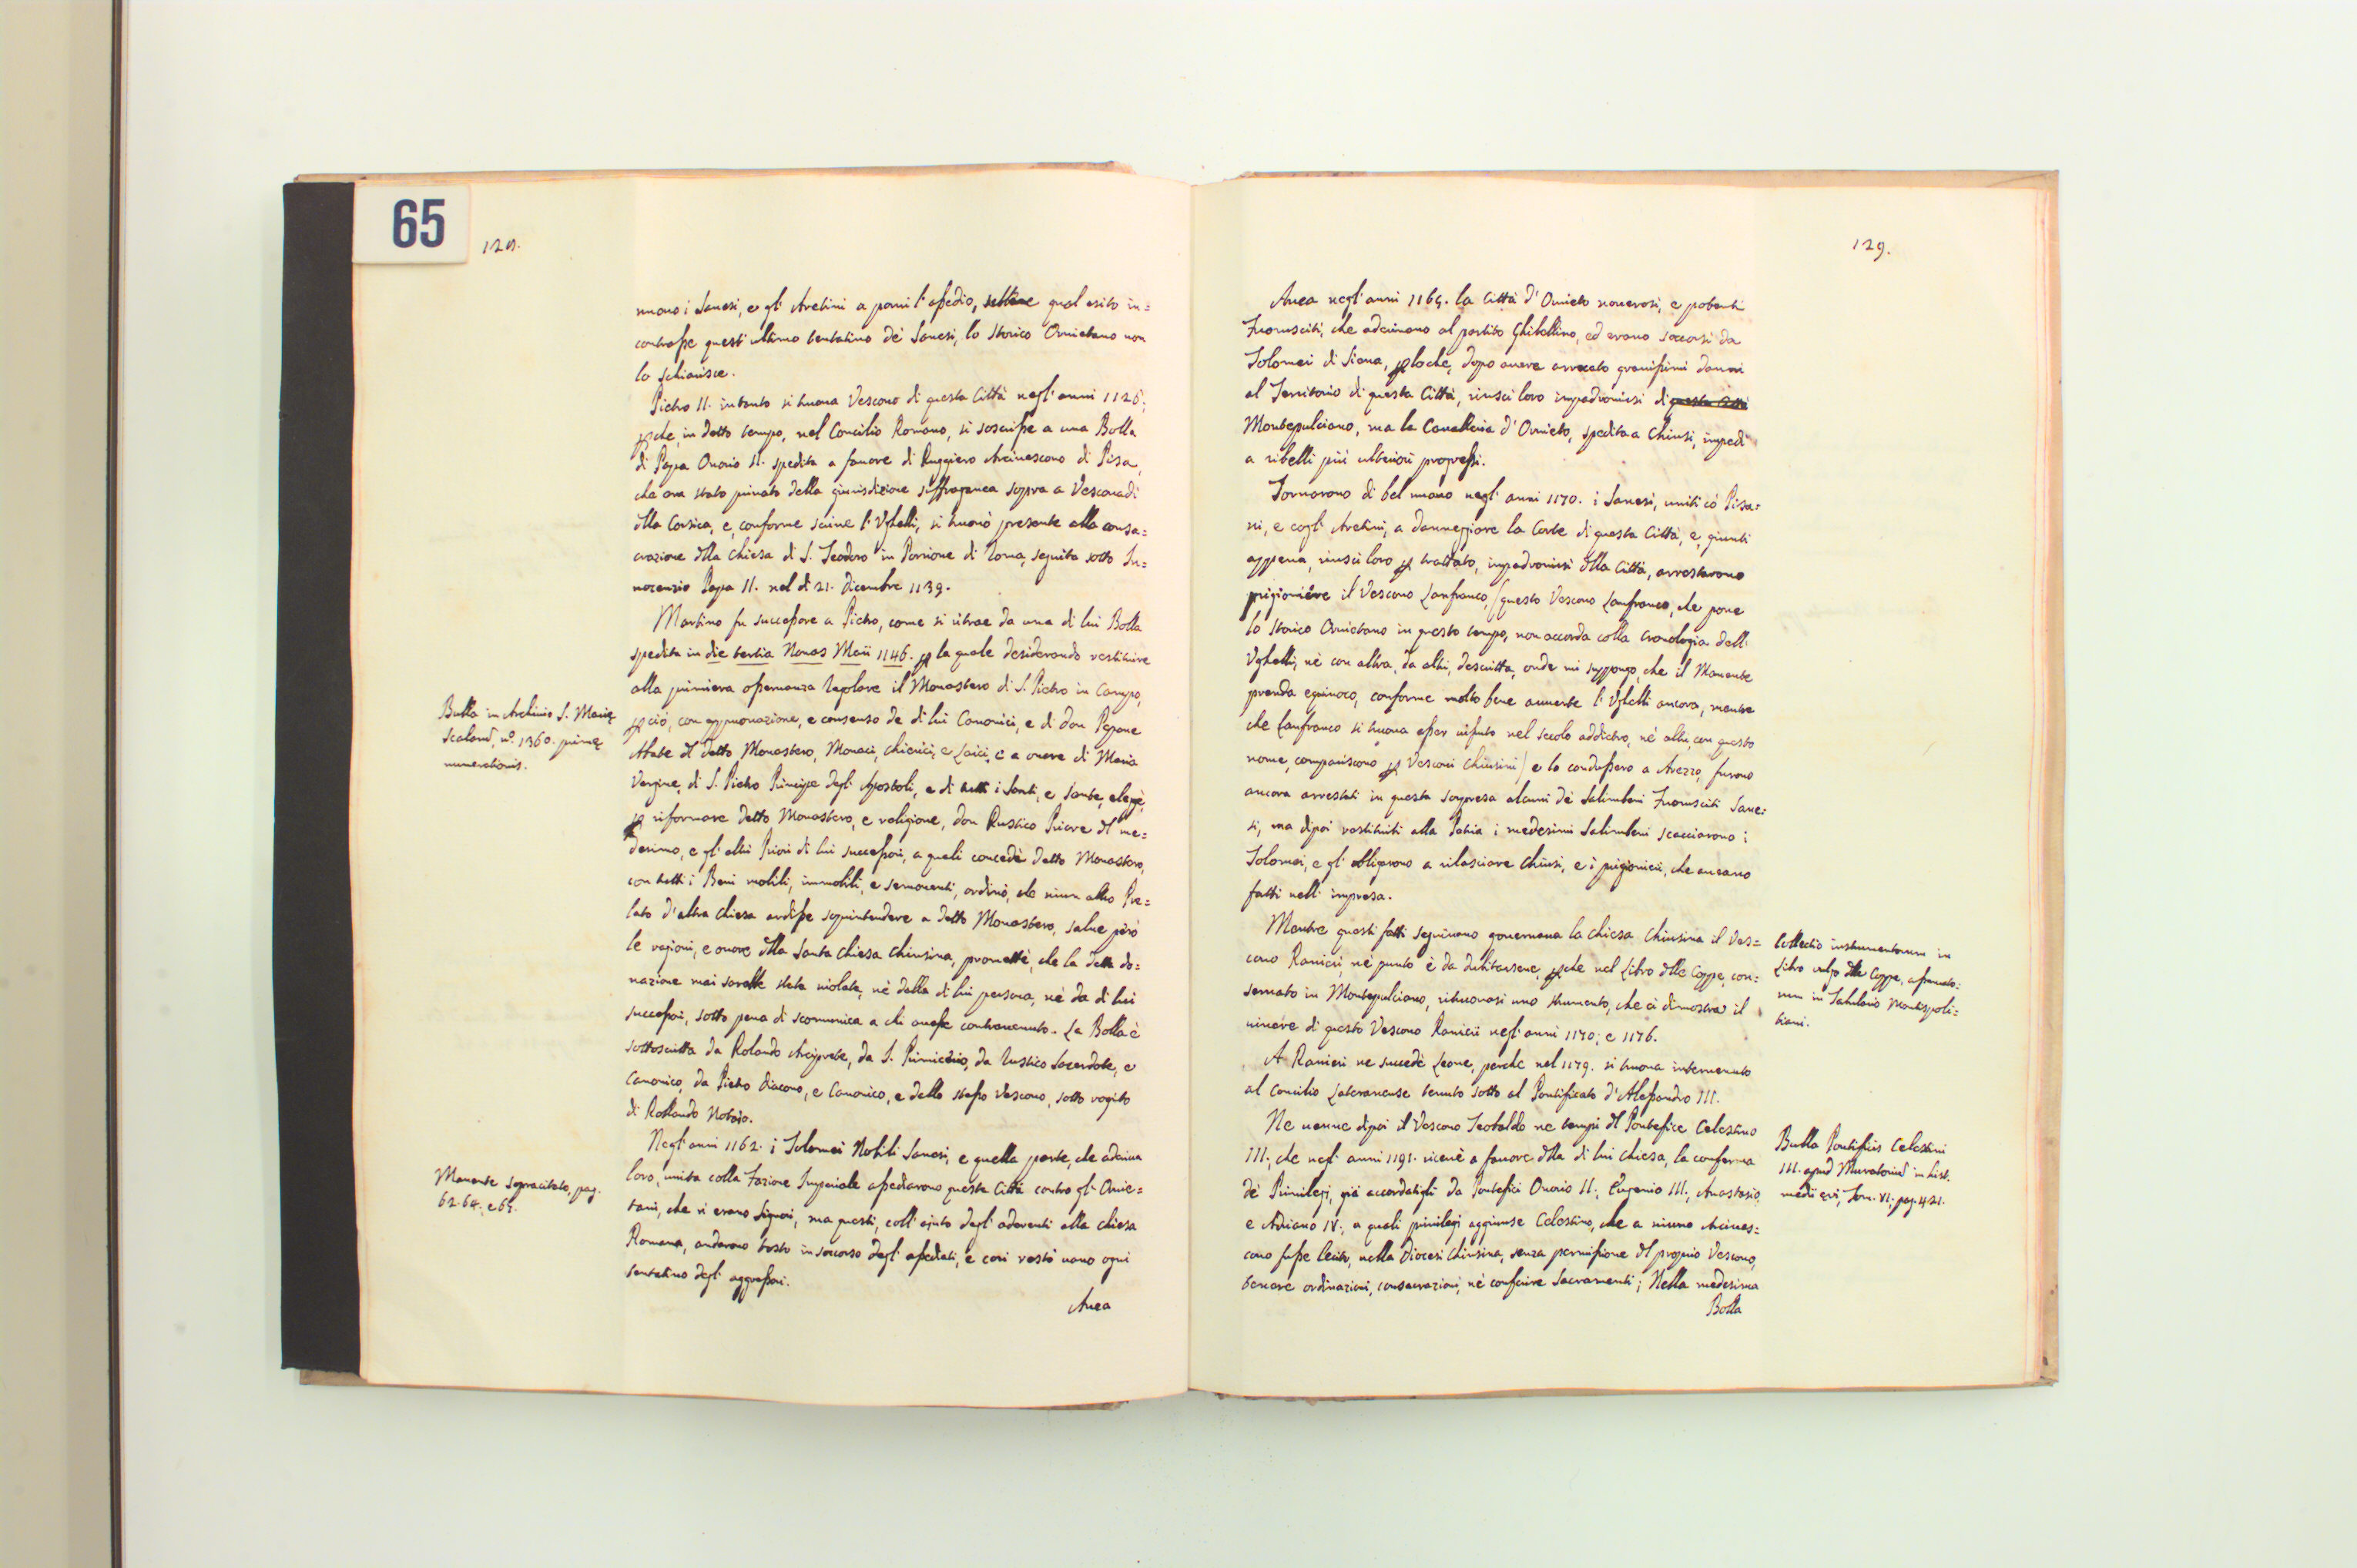 65
128.
nuano i Sanesi, e gl' Aretini a porvi l' assedio, qual esito in=
contrasse quest' ultimo tentativo de' Sanesi, lo Storico Orvietano non
lo schiarisce.
Pietro II. intanto si truova Vescovo di questa Città negl' anni 1126;
pche, in detto tempo, nel Concilio Romano, si soscrisse a una Bolla
di Papa Onorio II. spedita a favore di Ruggiero Arcivescovo di Pisa,
che era stato privato della giurisdizione suffraganea sopra a Vescovadi
dlla Corsica, e, conforme scrive l' Vghelli, si truovò presente alla consa=
crazione dlla Chiesa di S. Teodoro in Porrione di Roma, seguita sotto In=
nocenzio Papa II. nel dì 21. Dicembre 1139.
Martino fu successore a Pietro, come si ritrae da una di lui Bolla
spedita in die tertia Nonas Maii 1146. p la quale desiderando restituire
alla primiera osservanza regolare il Monastero di S. Pietro in Campo,
p ciò, con approvazione, e consenso de di lui Canonici, e di don Pagano
Abate dl detto Monastero, Monaci, Chierici, e Laici, e a onore di Maria
Vergine, di S. Pietro Principe degl' Apostoli, e di tutti i Santi, e Sante, elegge,
p riformare detto Monastero, e religione, don Rustico Priore dl me=
desimo, e gl' altri Priori di lui successori, a quali concedè detto Monastero,
con tutti i Beni mobili, immobili, e semoventi, ordinò, che niun altro Pre=
lato d' altra Chiesa ardisse soprintendere a detto Monastero, salve però
le ragioni, e onore dlla Santa Chiesa Chiusina, promette, che la detta do=
nazione mai sarebbe stata violata, nè dalla di lui persona, nè da di lui
successori, sotto pena di scomunica a chi avesse contravenuto. La Bolla è
sottoscritta da Rolando Arciprete, da S. Primicerio, da Rustico Sacerdote, e
Canonico, da Pietro diacono, e Canonico, e dallo stesso Vescovo, sotto rogito
di Rollando Notaio.
Negl' anni 1162. i Tolomei Nobili Sanesi, e quella parte, che aderiva
loro, unita colla Fazione Imperiale assediarono questa Città contro gl' Orvie=
tani, che vi erano Signori, ma questi, coll' ajuto degl' aderenti alla Chiesa
Romana, andarono tosto in soccorso degl' assediati, e così restò vano ogni
tentativo degl' aggressori.
Avea
Bulla in Archivio S. Marię
Scalarũ, nº. 1360. primę
numerationis.
Manente sopracitato, pag.
62. 64. e 65.
129.
Avea negl' anni 1165. la Città d' Orvieto nonerosi, e potenti
Fuorusciti, che aderivano al partito Ghibellino, ed erano soccorsi da
Tolomei di Siena, p loche, dopo avere arrecato gravissimi danni
al Territorio di questa Città, riuscì loro impadronirsi di questa Città
Montepulciano, ma la Cavalleria d' Orvieto, spedita a Chiusi, impedì
a ribelli più ulteriori progressi.
Tornarono di bel nuovo negl' anni 1170. i Sanesi, uniti có Pisa=
ni, e cogl' Aretini, a danneggiare la Corte di questa Città, e, giunti
appena, riuscì loro p trattato, impadronirsi dlla Città, arrestarono
prigioniere il Vescovo Lanfranco, (questo Vescovo Lanfranco, che pone
lo Storico Orvietano in questo tempo, non accorda colla cronologia dell'
Vghelli, nè con altra, da altri, descritta, onde mi suppongo, che il Manente
prenda equivoco, conforme molto bene avverte l' Vghelli ancora, mentre
che Lanfranco si truova esser vissuto nel secolo addietro, nè altri, con questo
nome, compariscono p Vescovi Chiusini) e lo condussero a Arezzo, furono
ancora arrestati in questa sorpresa alcuni de' Salimbeni Fuorusciti Sane=
si, ma dipoi restituiti alla Patria i medesimi Salimbeni scacciarono i
Tolomei, e gl' obligarono a rilasciare Chiusi, e i prigionieri, che avevano
fatti nell' impresa.
Mentre questi fatti seguivano governava la Chiesa Chiusina il Ves=
covo Ranieri, nè punto è da dubitarsene, pche nel Libro dlle Coppe, con=
servato in Montepulciano, ritruovasi uno strumento, che ci dimostra il
vivere di questo Vescovo Ranieri negl' anni 1170; e 1176.
A Ranieri ne succedè Leone, perche nel 1179. si truova intervenuto
al Concilio Lateranense tenuto sotto al Pontificato d' Alessandro III.
Ne venne dipoi il Vescovo Teobaldo ne tempi dl Pontefice Celestino
III., che negl' anni 1191. ricevè a favore dlla di lui Chiesa, la conferma
de' Privilegj, già accordatigli da Pontefici Onorio II., Eugenio III., Anastasio,
e Adriano IV., a quali privilegj aggiunse Celestino, che a niuno Arcives=
covo fusse lecito, nella Diocesi Chiusina, senza permissione dl proprio Vescovo,
tenere ordinazioni, consacrazioni, nè conferire Sacramenti; Nella medesima
Bolla
Collectio instrumentorum in
Libro vulgo dlle Coppe, asservato=
rum in Tabulario Montispoli=
tiani.
Bulla Pontificis Celestini
III. apud Muratoriũ in hist.
medii ęvi, Tom. VI. pag. 421.